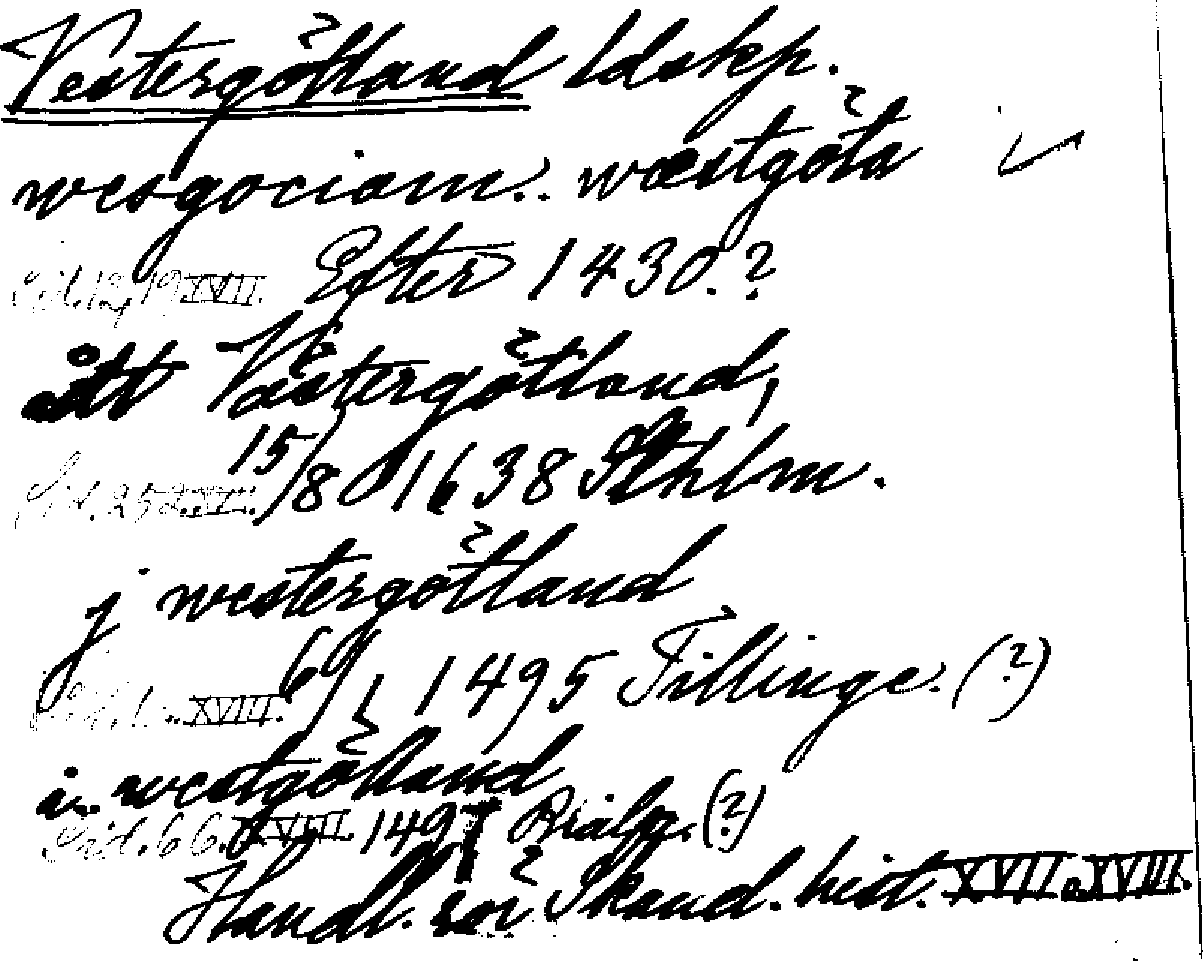 Vestergötland ldskp.
wesgociam.. wæstgöta
Sid. 12, 19 XVII. Efter 1430.?
att Västergötland,
Sid. 252 XVII. 15/8 1638 Sthlm.
j westergötland
Sid. 1 .. XVIII. 1495 Tillinge. (?)
i westgötland
Sid. 66. XVIII. 1497 (?)
Handl. rör Skand. hist. XVII o XVIII.